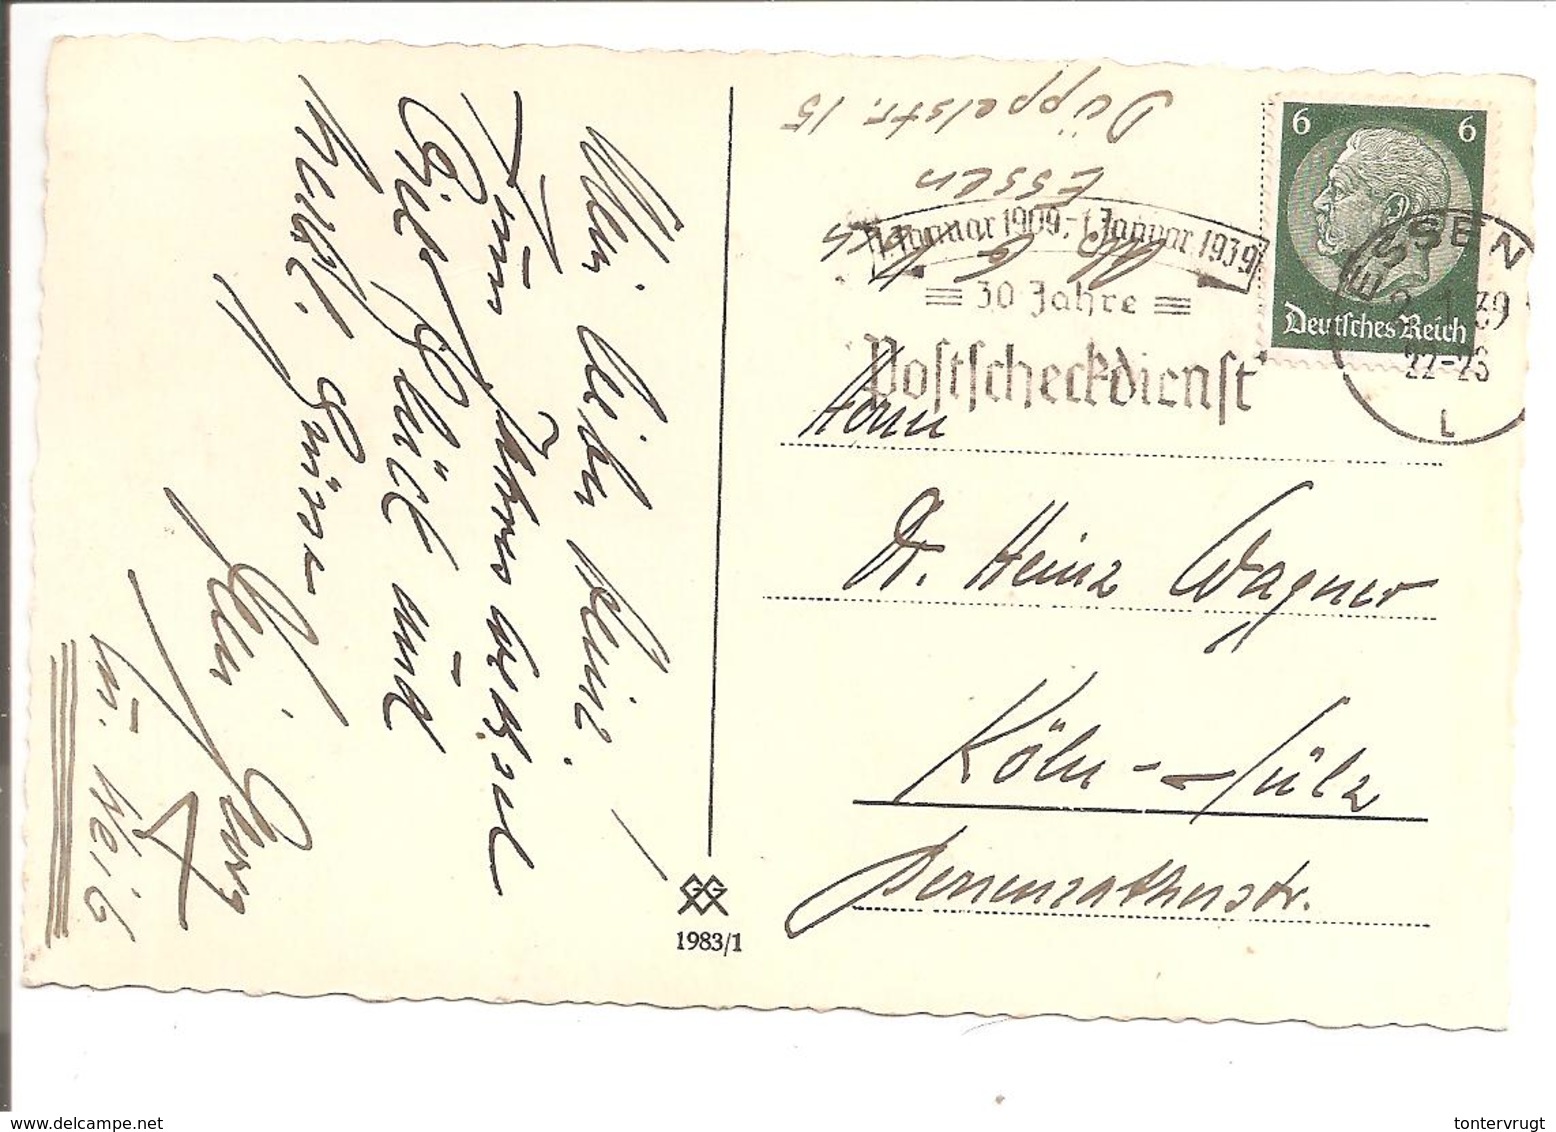 Mein lieber Heinz,
zum Jahreswechsel
viel Glück und
herzl. Grüsse
Dein Georg
u. Weib
1983/1
Düppelstr. 15
Essen
6 6
Deutsches Reich
1. Januar 1909 - 1. Januar 1939
30 Jahre
Postscheckdienst
ESSEN
2.1.39
22-23
L
Herrn
Dr. Heinz Wagner
Köln-Sülz
Berrenratherstr.
delcampe.net
tontervrugt